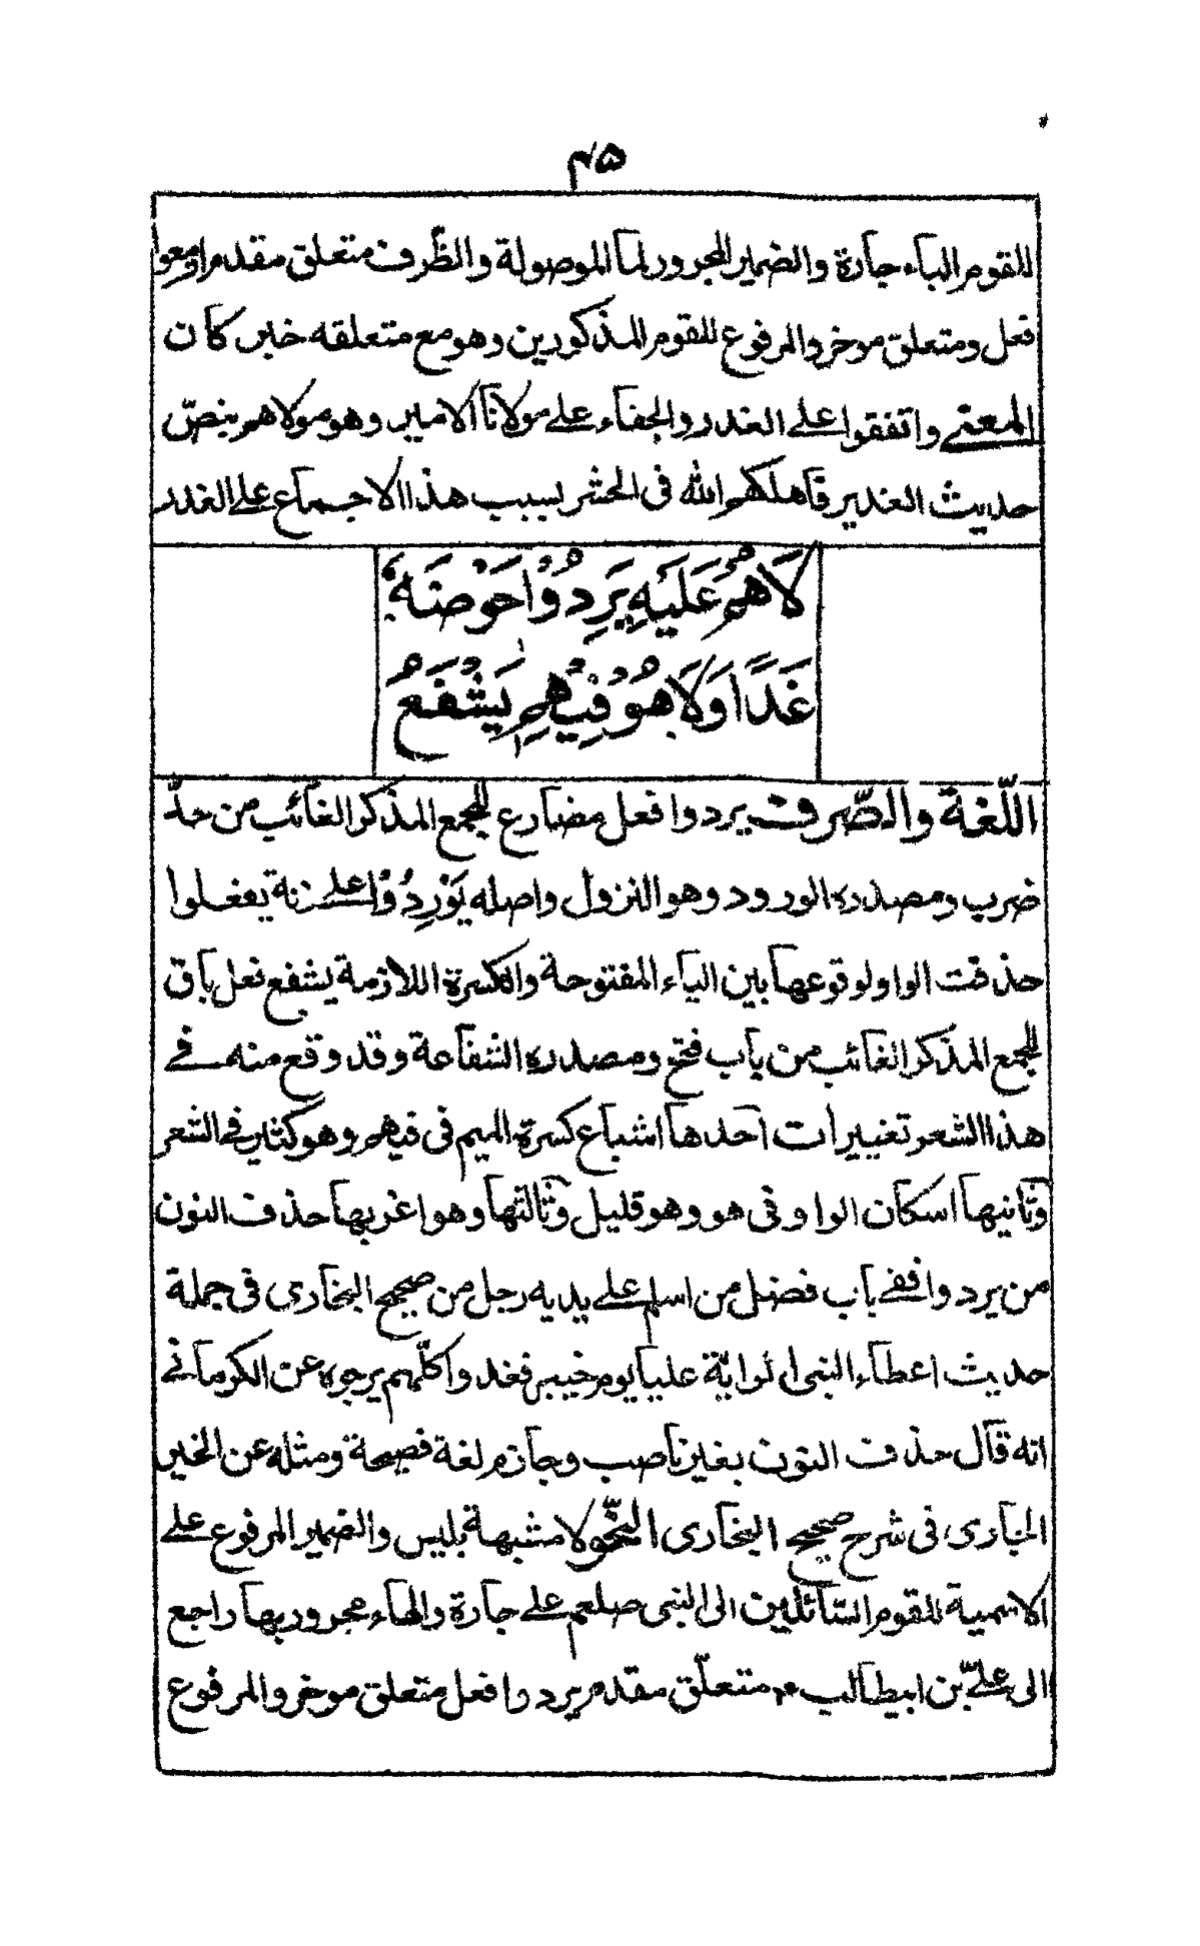 ۴۵
للقوم الباء جارة والضمير المجرور لما الموصولة والظرف متعلق مقدم ازمعوا
فعل ومتعلق موخر والمرفوع للقوم المذكورين وهو مع متعلقه خبر كان
المعنى واتفقوا على الغدر والجفاء على مولانا الامير وهو مولاهم بنصّ
حديث الغدير فاهلكهم الله فى الحشر بسبب هذا الاجماع على الغدر
لَاهُمْ عَلَيْهِ يَرِدُوْا حَوْضَهٗ
غَدًا وَلَا هُوْ فِيْهِمِ يَشْفَعُ
اللّغة والصّرف يردوا فعل مضارع للجمع المذكر الغائب من حدّ
ضرب ومصدره الورود وهو النزول واصله يَوْرِدُوْا على زنة يفعلوا
حذفت الواو لوقوعها بين الياء المفتوحة والكسرة اللازمة يشفع فعل باق
للجمع المذكر الغائب من باب فتح ومصدره الشفاعة وقد وقع منه فى
هذا الشعر تغييرات احدها اشباع كسرة الميم فى فيهم وهو كثير فى الشعر
وثانيها اسكان الواو فى هو وهو قليل وثالثها وهو اغربها حذف النون
من يردوا ففى باب فضل من اسلم على يديه رجل من صحيح البخارى فى جملة
حديث اعطاء النبى الراية عليا يوم خيبر فغدوا كلّهم يرجوه عن الكرمانى
انه قال حذف النون بغير ناصب وجازم لغة فصيحة ومثله عن الخير
الجارى فى شرح صحيح البخارى النّحو لا مشبهة بليس والضمير المرفوع على
الاسمية للقوم السائلين الى النبى صلعم على جارة والهاء مجرور بها راجع
الى علىّ بن ابيطالب ؑم متعلّق مقدم يردوا فعل متعلق موخر والمرفوع